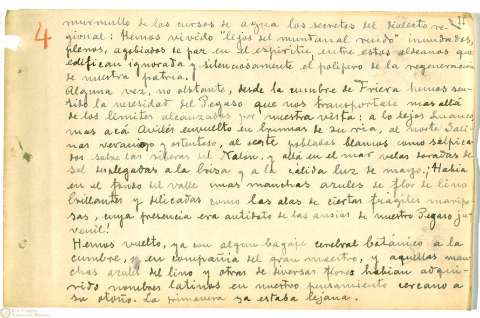 4
11
murmullo de los cursos de agua los secretos del dialecto re-
gional: Hemos vivido "lejos del mundanal ruido" inundados,
plenos, agobiados de paz en el espíritu, entre estos aldeanos que
edifican ignorada y silenciosamente el polipero de la regeneración
de nuestra patria.
Alguna vez, no obstante, desde la cumbre de Friera hemos sen-
tido la necesidad del Pegaso que nos transportase mas allá
de los límites alcanzados por nuestra vista: a lo lejos Luanco,
mas acá Avilés envuelto en brumas de su ria, al norte Sali-
nas veraniego y ostentoso, al oeste poblados blancos como salpica-
dos sobre las riberas del Nalón, y allá en el mar velas doradas de
sol desplegadas a la brisa y a la cálida luz de mayo. ¡Había
en el fondo del valle unas manchas azules de flor de lino
brillantes y delicadas como las alas de ciertas frágiles maripo-
sas, cuya presencia era antídoto de las ansias de nuestro Pegaso ju-
venil!
Hemos vuelto, ya con algun bagaje cerebral botánico a la
cumbre, y en compañía del gran maestro, y aquellas man-
chas azules del lino y otras de diversas flores habían adqui-
rido nombres latinos en nuestro pensamiento cercano a
su otoño. La primavera ya estaba lejana.